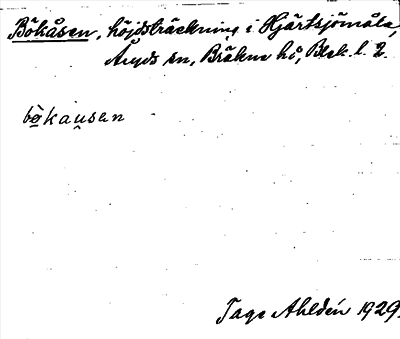 Bökåsen, höjdsträckning i Hjärtsjömåla,
Åryds sn, Bräkne hd, Blek. l. 2.
bö̀kau̯sən
Tage Ahldén 1929.